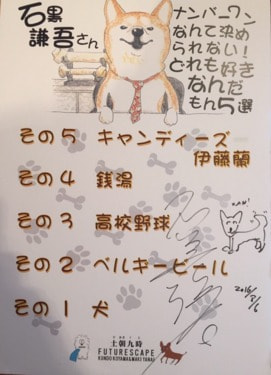 石黒謙吾さん
ナンバーワン
なんて決め
られない!
どれも好き
なんだ
もん5選
その5 キャンディーズ
伊藤蘭
その4 銭湯
その3 高校野球
その2 ベルギービール
その1 犬
WAN!
2016/2/6
土朝九時
FUTURESCAPE
KUNDO KOYAMA & MAKI YANAI